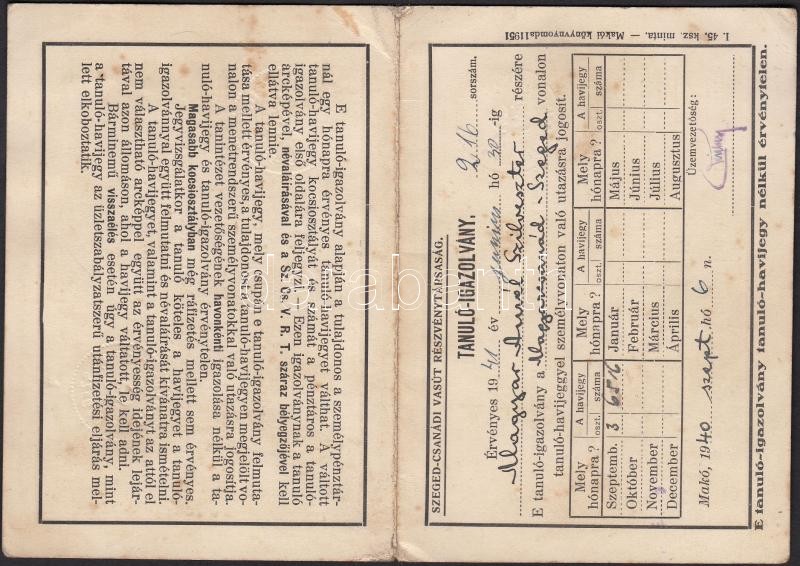 E tanuló-igazolvány alapján a tulajdonos a személypénztár-
nál egy hónapra érvényes tanuló-havijegyet válthat. A váltott
tanuló-havijegy kocsiosztályát és számát a pénztáros a tanuló-
igazolvány első oldalára feljegyzi. — Ezen igazolványnak a tanuló
arcképével, névaláírásával és a Sz. Cs. V. R. T. száraz bélyegzőjével kell
ellátva lennie.
A tanuló-havijegy, mely csupán e tanuló-igazolvány felmuta-
tása mellett érvényes, a tulajdonost a tanuló-havijegyen megjelölt vo-
nalon a menetrendszerű személyvonatokkal való utazásra jogosítja.
A tanintézet vezetőségének havonkénti igazolása nélkül a ta-
nuló-havijegy és tanuló-igazolvány érvénytelen.
Magasabb kocsiosztályban még ráfizetés mellett sem érvényes.
Jegyvizsgálatkor a tanuló köteles a havijegyet a tanuló-
igazolvánnyal együtt felmutatni és névaláírását kívánatra ismételni.
A tanuló-havijegyet, valamint a tanuló-igazolványt az attól el
nem választható arcképpel együtt az érvényesség idejének lejár-
tával azon állomáson, ahol a havijegy váltatott, le kell adni.
Bárminemű visszaélés esetén úgy a tanuló-igazolvány, mint
a tanuló-havijegy az üzletszabályzatszerű utánfizetési eljárás mel-
lett elkoboztatik.
I. 45. ksz. minta. — Makói könyvnyomda 11951
SZEGED-CSANÁDI VASÚT RÉSZVÉNYTÁRSASÁG.
TANULÓ-IGAZOLVÁNY. 216 sorszám.
Érvényes 1941 év junius hó 30-ig
Magyar Szilveszter részére
E tanuló-igazolvány a Magyarcsanád-Szeged vonalon
tanuló-havijeggyel személyvonaton való utazásra jogosít.
Mely hónapra? A havijegy oszt. száma Mely hónapra? A havijegy oszt. száma Mely hónapra? A havijegy oszt. száma
Szeptemb. 3 6516 Január Május
Október Február Június
November Március Július
December Április Augusztus
Makó, 1940 szept. hó 6 n.
Üzemvezetőség:
E tanuló-igazolvány tanuló-havijegy nélkül érvénytelen.